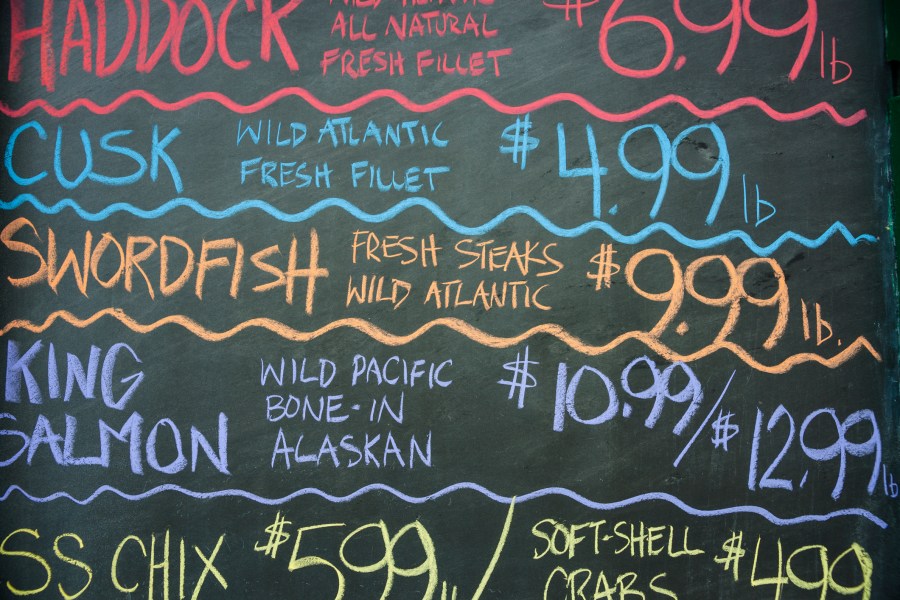 HADDOCK
ALL NATURAL
FRESH FILLET
$6.99 lb
CUSK
WILD ATLANTIC
FRESH FILLET
$4.99 lb
SWORDFISH
FRESH STEAKS
WILD ATLANTIC
$9.99 lb.
KING
SALMON
WILD PACIFIC
BONE-IN
ALASKAN
$10.99/$12.99 lb
SS CHIX $5.99 /
SOFT-SHELL
CRABS
$4.99